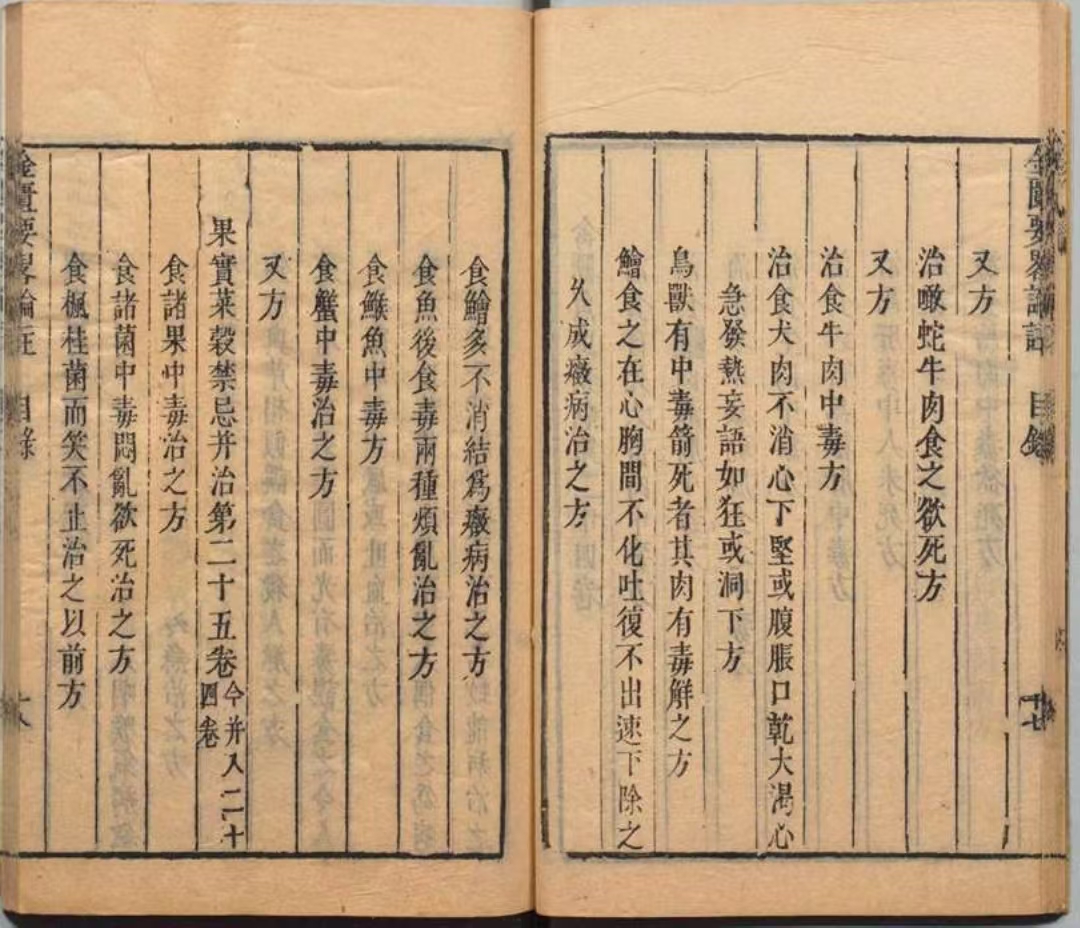 金匱要畧論註 目錄 十七
又方
治噉蛇牛肉食之欲死方
又方
治食牛肉中毒方
治食犬肉不消心下堅或腹脹口乾大渴心
急發熱妄語如狂或洞下方
鳥獸有中毒箭死者其肉有毒解之方
鱠食之在心胸間不化吐復不出速下除之
久成癥病治之方
食鱠多不消結爲癥病治之方
食魚後食毒兩種煩亂治之方
食鯸魚中毒方
食蟹中毒治之方
又方
果實菜穀禁忌并治第二十五卷今并入二十四卷
食諸果中毒治之方
食諸菌中毒悶亂欲死治之方
食楓柱菌而笑不止治之以前方
金匱要畧論註 目錄